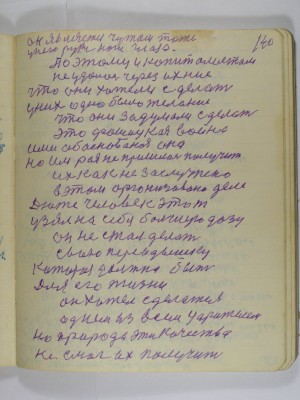 он явлении чутам тоже
него руки ноги глаза.
140
Поэтому и копитолистам
не удалос через их ние
что они хотели сделат
у них одно было желание
что они задумали сделат
Это фашиская война
ими обоснованоя она
но им рая не пришлос получит
их как не заслужено
в этом организовано деле
Дюже человек этот
узял на себя болчную дозу
он не стал делат
свою передышку
Которая должна быт
для его жизни
он хотел сделатся
одним из всем ударителем
Но природа эти качества
не смог их получит